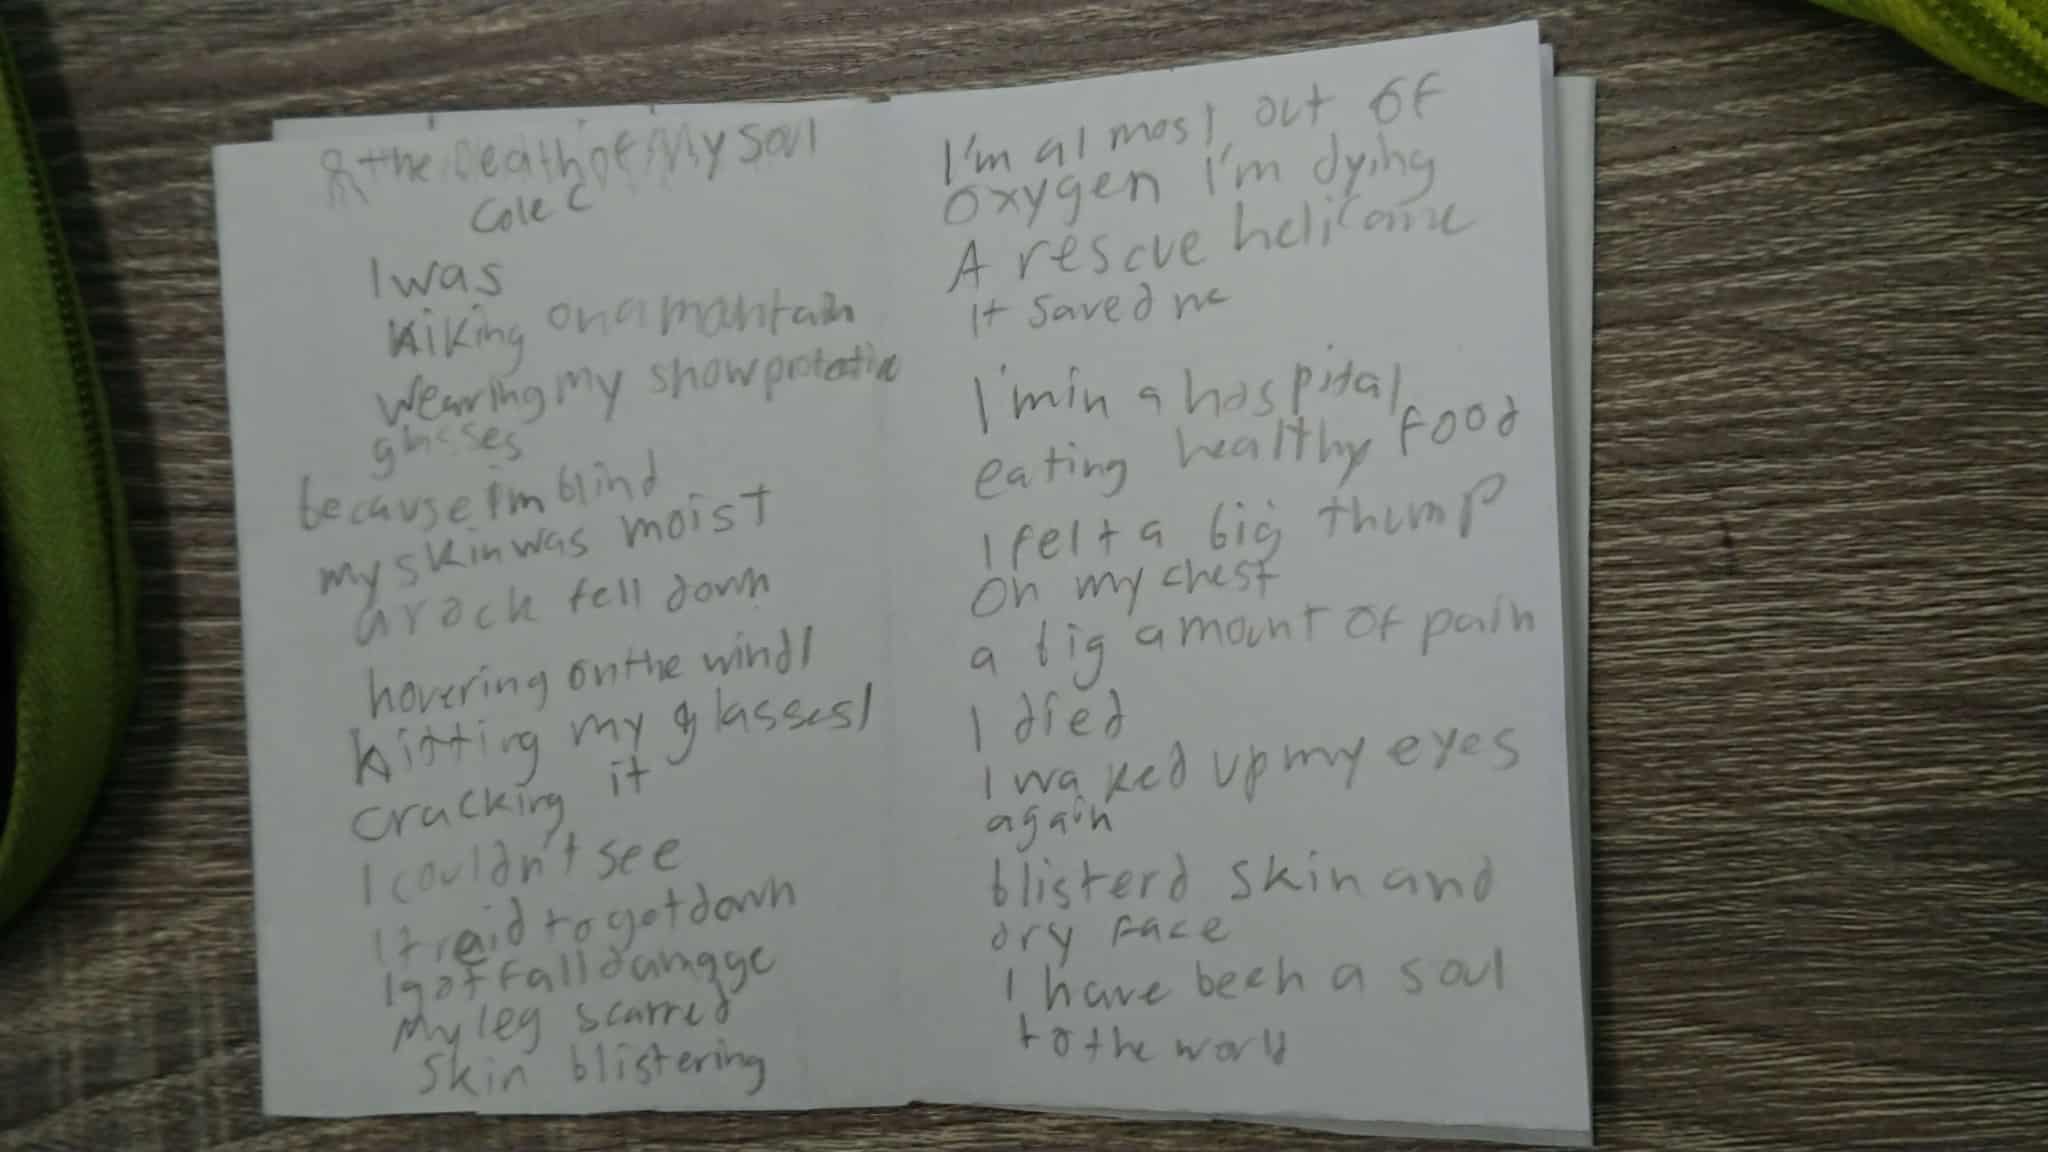 the Death of My Soul
Cole C
I was
hiking on a mantain
wearing my snow
glasses
because i'm blind
my skin was moist
a rock fell down
hovering on the wind/
hitting my glasses/
cracking it
I couldn't see
I traid to got down
I got fall damage
My leg scarred
Skin blistering
I'm almost out of
oxygen I'm dying
A rescue heli came
it saved me
I'm in a hospital
eating healthy food
I felt a big thump
on my chest
a big amount of pain
I died
I waked up my eyes
again
blisterd skin and
dry face
I have been a soul
to the world